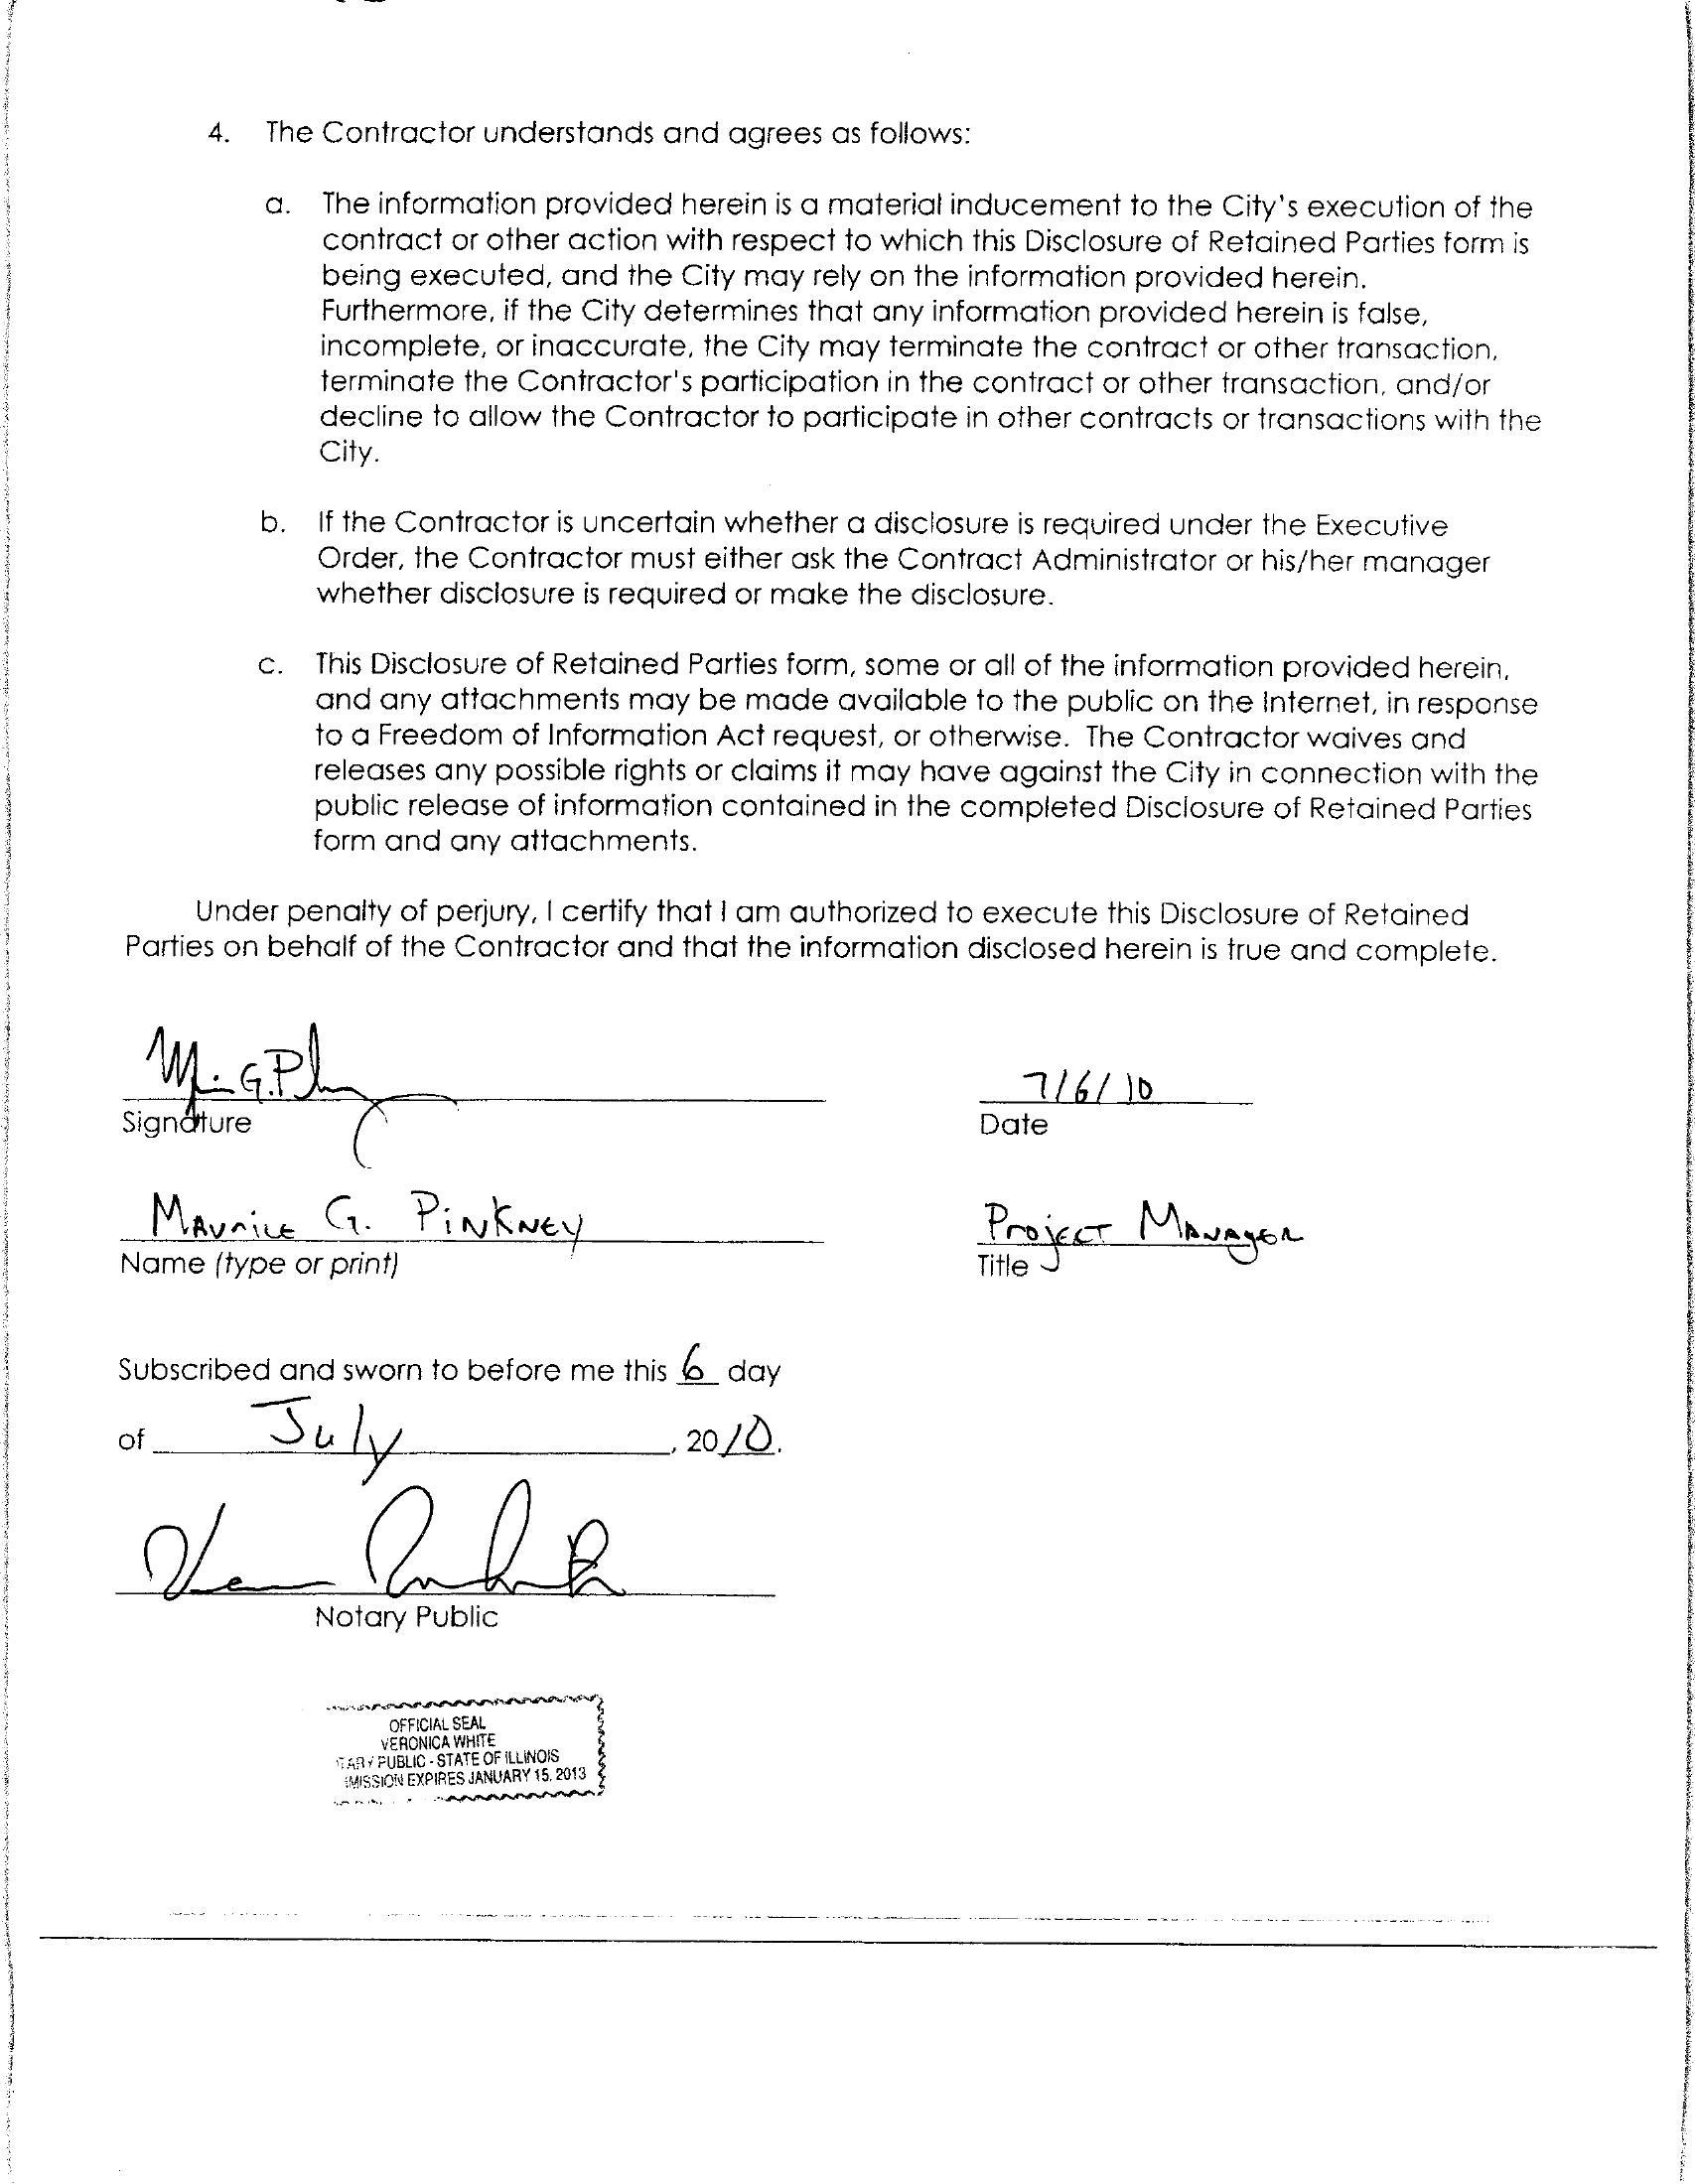 4. The Contractor understands and agrees as follows:
a. The information provided herein is a material inducement to the City's execution of the
contract or other action with respect to which this Disclosure of Retained Parties form is
being executed, and the City may rely on the information provided herein.
Furthermore, if the City determines that any information provided herein is false,
incomplete, or inaccurate, the City may terminate the contract or other transaction,
terminate the Contractor's participation in the contract or other transaction, and/or
decline to allow the Contractor to participate in other contracts or transactions with the
City.
b. If the Contractor is uncertain whether a disclosure is required under the Executive
Order, the Contractor must either ask the Contract Administrator or his/her manager
whether disclosure is required or make the disclosure.
c. This Disclosure of Retained Parties form, some or all of the information provided herein,
and any attachments may be made available to the public on the Internet, in response
to a Freedom of Information Act request, or otherwise. The Contractor waives and
releases any possible rights or claims it may have against the City in connection with the
public release of information contained in the completed Disclosure of Retained Parties
form and any attachments.
Under penalty of perjury, I certify that I am authorized to execute this Disclosure of Retained
Parties on behalf of the Contractor and that the information disclosed herein is true and complete.
7/6/10
Signature Date
Maurice G. Pinkney Project Manager
Name (type or print) Title
Subscribed and sworn to before me this 6 day
of July, 2010.
Notary Public
OFFICIAL SEAL
VERONICA WHITE
TARY PUBLIC - STATE OF ILLINOIS
MISSION EXPIRES JANUARY 15, 2013